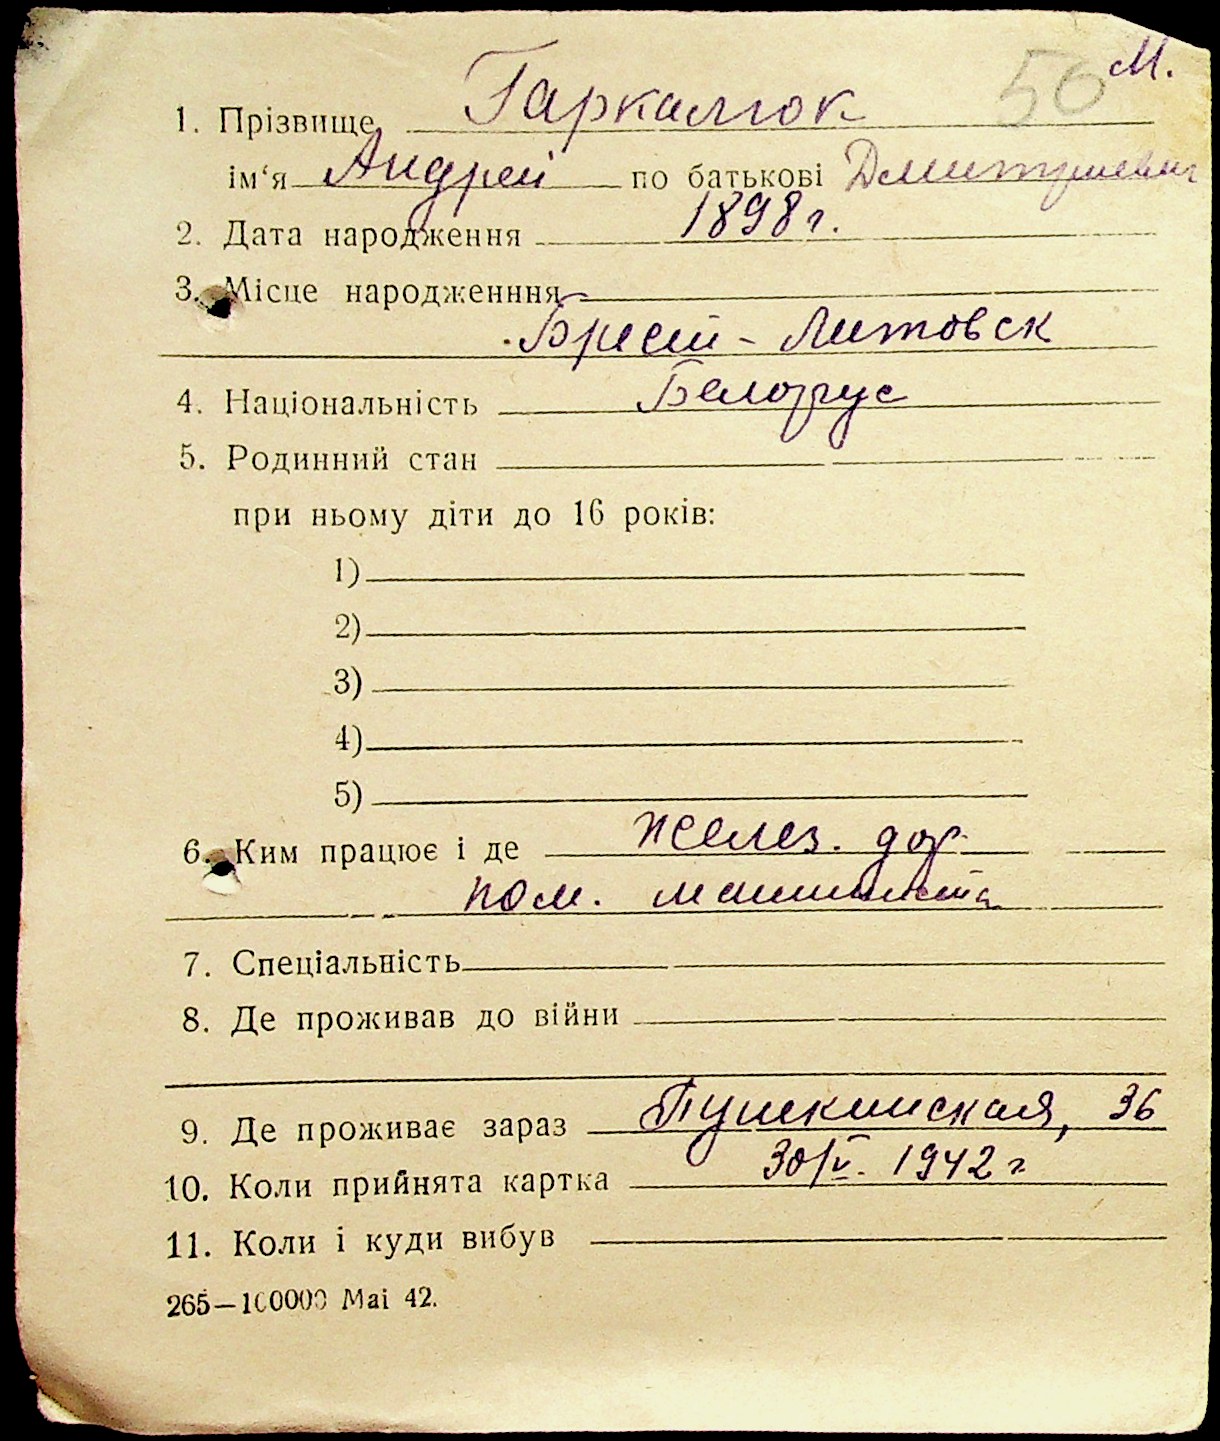 50 М.
1. Прізвище Гаркалюк
ім‘я Андрей по батькові Дмитриевич
2. Дата народження 1898 г.
3. Місце народженння
Брест - Литовск
4. Національність Белорус
5. Родинний стан
при ньому діти до 16 років:
1)
2)
3)
4)
5)
6. Ким працює і де желез. дор.
пом. машиниста
7. Спеціальність
8. Де проживав до війни
9. Де проживає зараз Пушкинская, 36
10. Коли прийнята картка 30/V. 1942 г
11. Коли і куди вибув
265—100000 Mai 42.